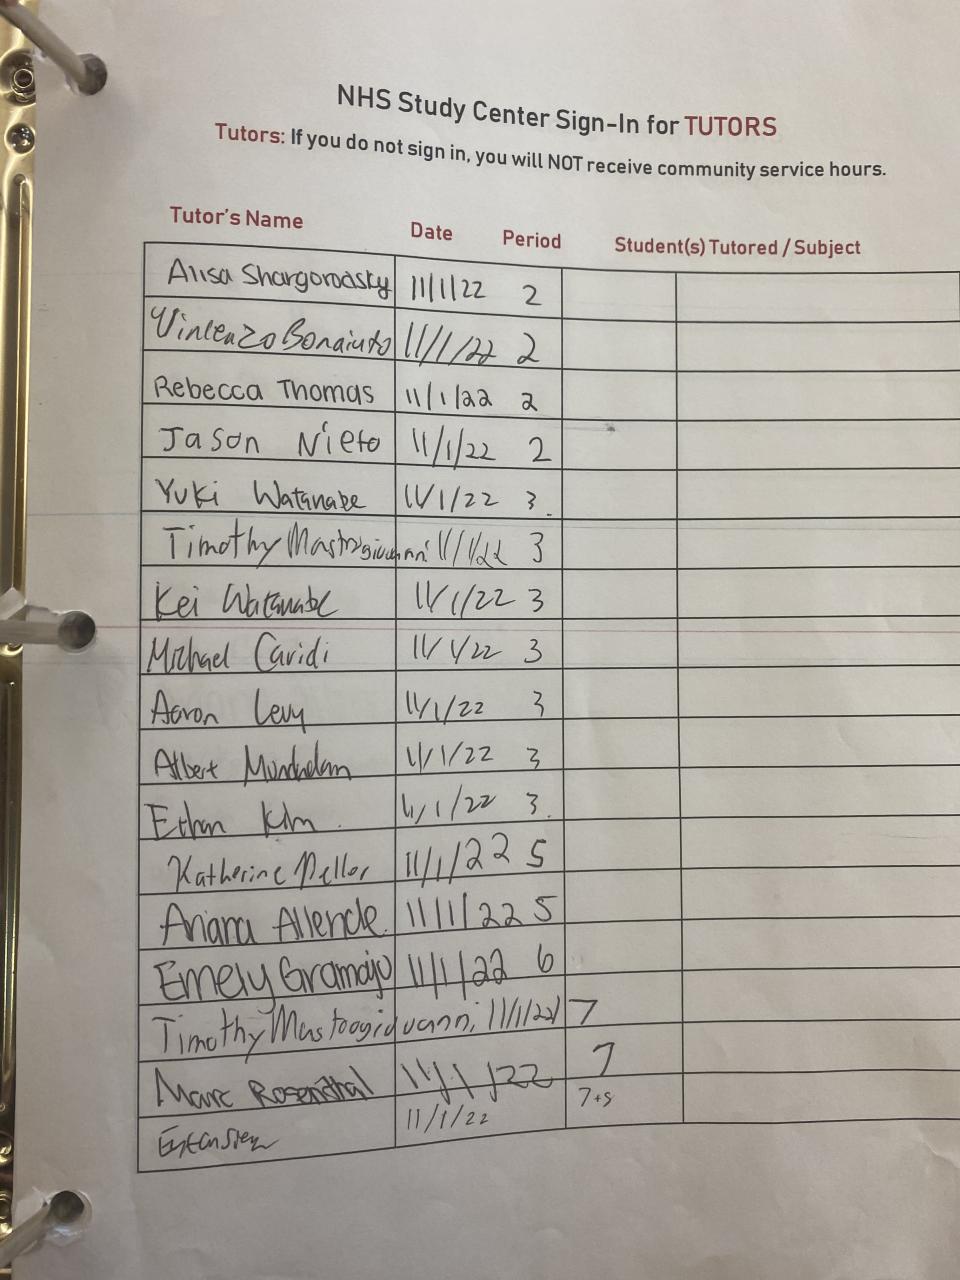 NHS Study Center Sign-In for TUTORS
Tutors: If you do not sign in, you will NOT receive community service hours.
Tutor's Name Date Period Student(s) Tutored / Subject
Alisa Shargorodsky 11/1/22 2
Vincenzo Bonaiuto 11/1/22 2
Rebecca Thomas 11/1/22 2
Jason Nieto 11/1/22 2
Yuki Watanabe 11/1/22 3
Timothy Mastrogiovanni 11/1/22 3
Kei Watanabe 11/1/22 3
Michael Caridi 11/1/22 3
Aaron Levy 11/1/22 3
Albert 11/1/22 3
Ethan Kim 11/1/22 3
Katherine 11/1/22 5
Ariana Allende 11/1/22 5
Emely Gramajo 11/1/22 6
Timothy Mastrogiovanni 11/1/22 7
Marc Rosenthal 11/1/22 7
11/1/22